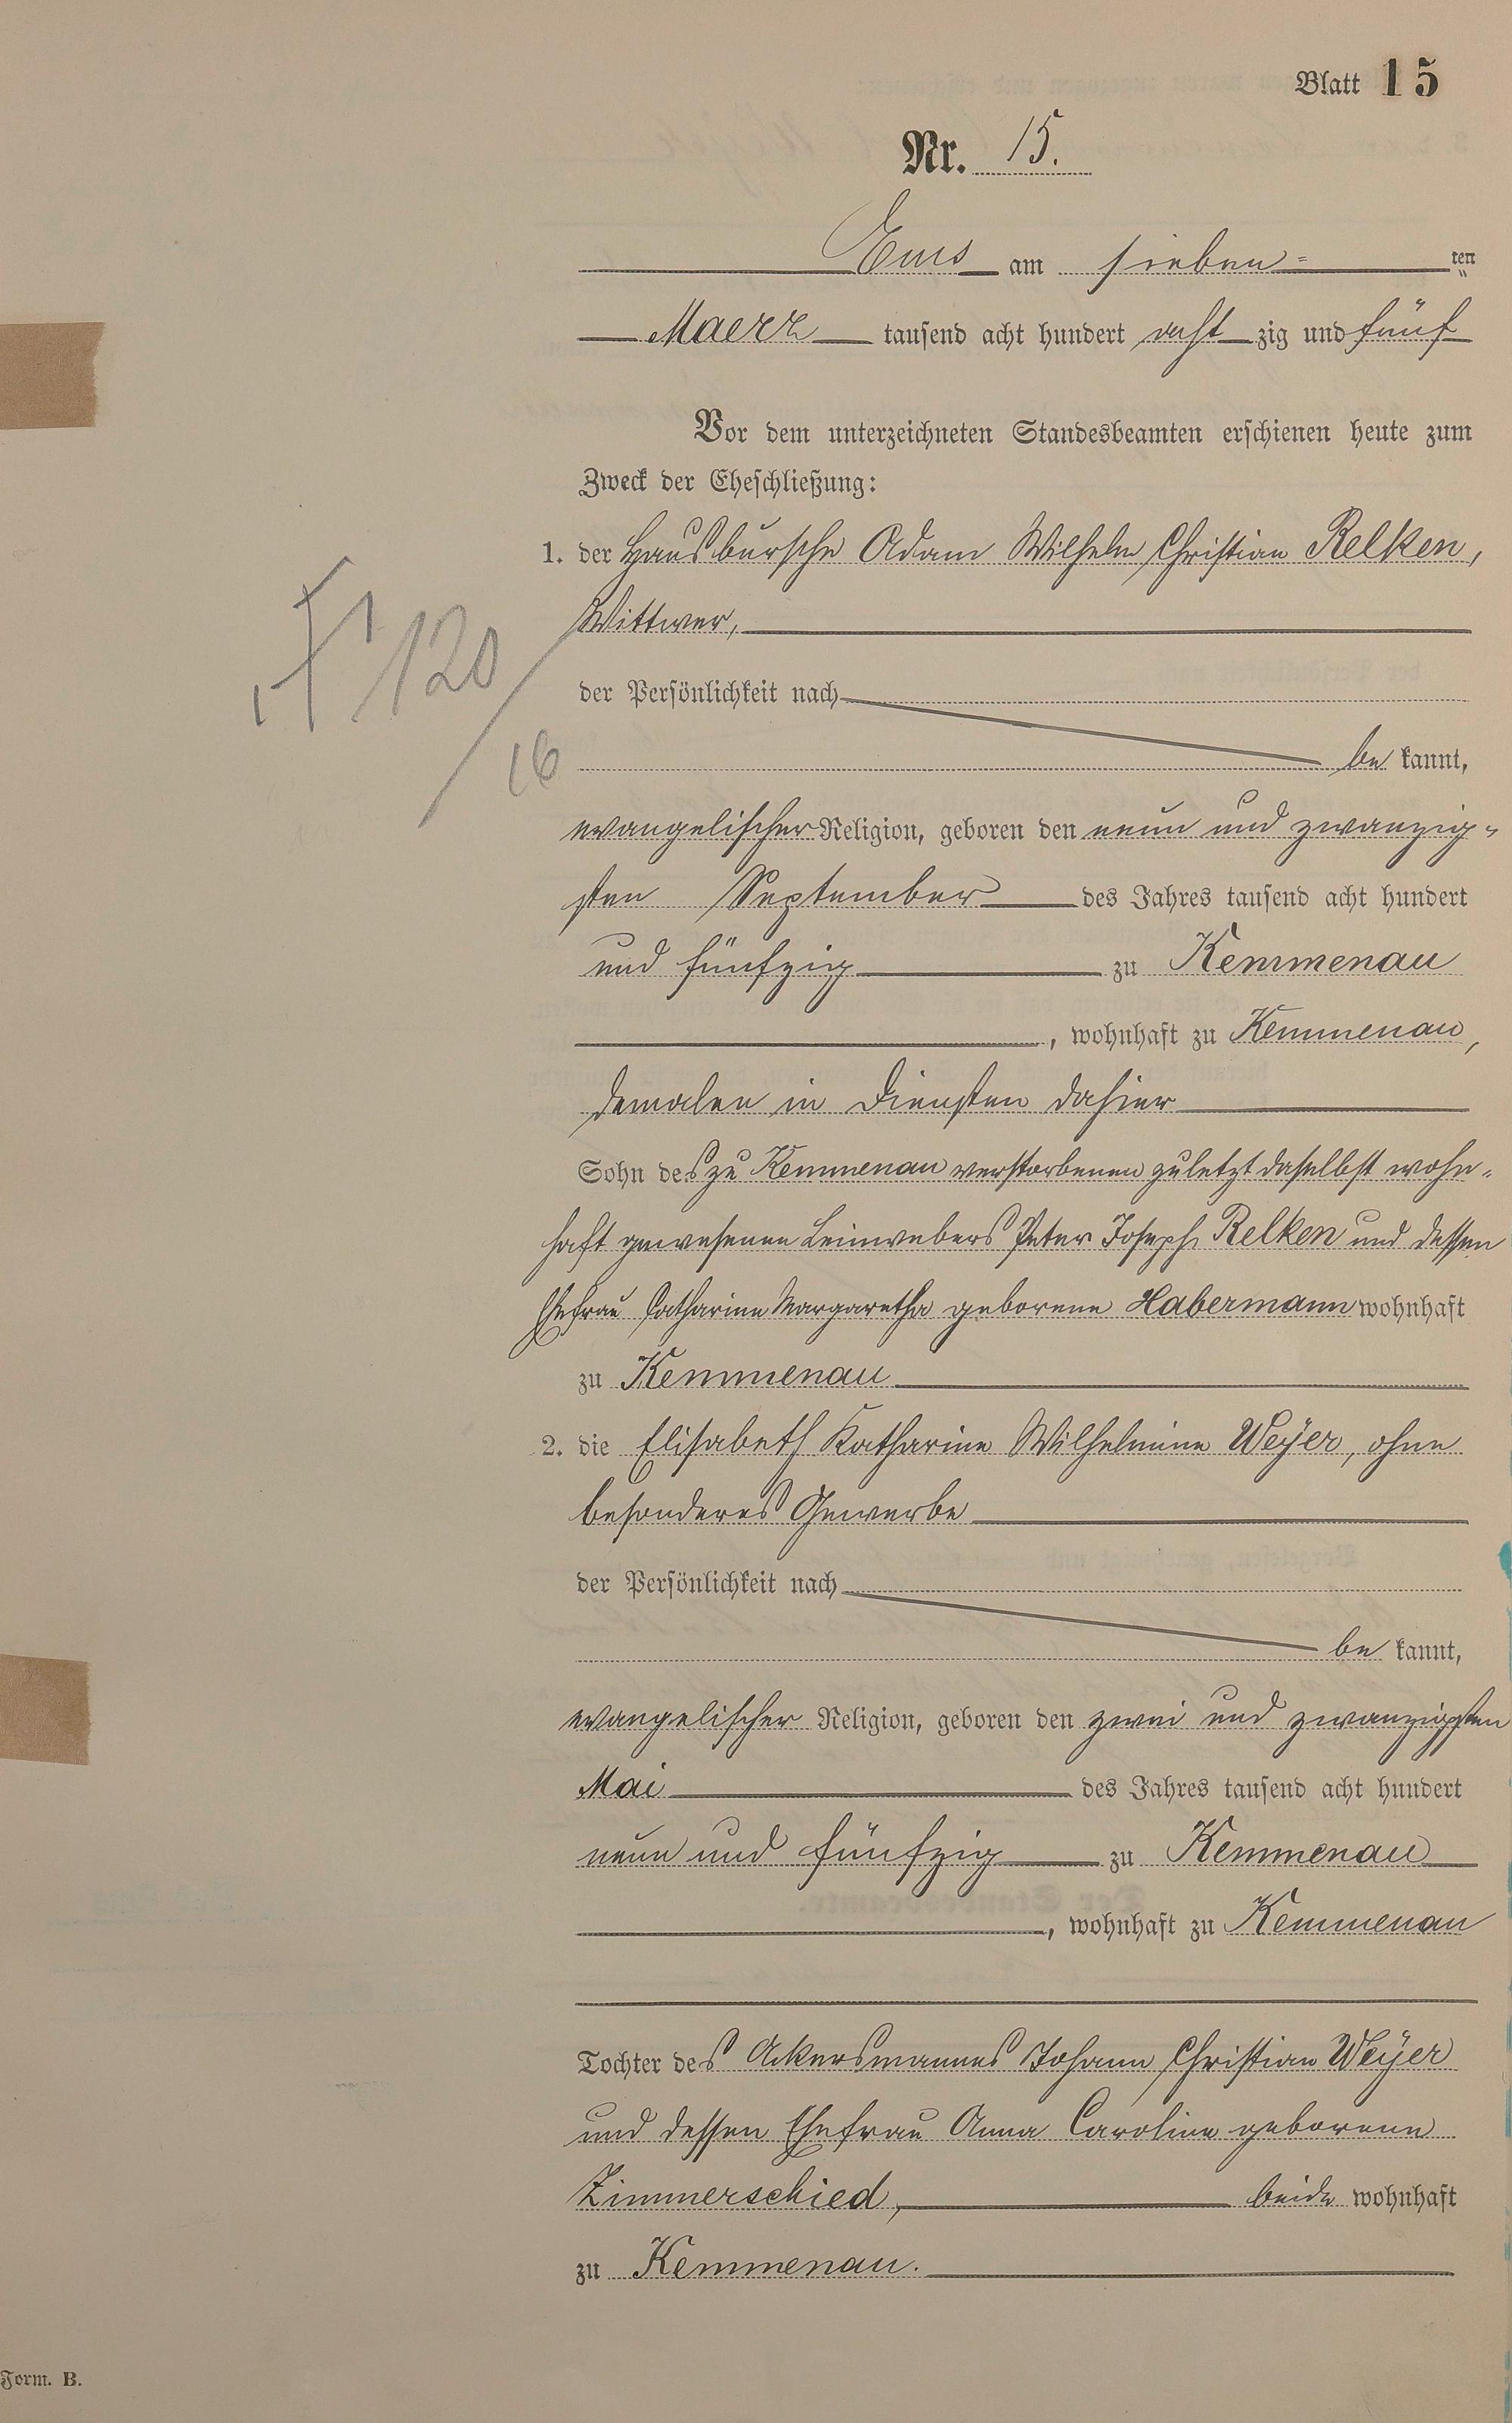 Blatt 15
Nr. 15.
Ems am sieben=ten
Maerz tausend acht hundert acht zig und fünf
Vor dem unterzeichneten Standesbeamten erschienen heute zum
Zweck der Eheschließung:
1. der Hausbursche Adam Wilhelm Christian Relken,
Wittwer,
der Persönlichkeit nach
be kannt,
evangelischer Religion, geboren den neun und zwanzig-
sten September des Jahres tausend acht hundert
und fünfzig zu Kemmenau
, wohnhaft zu Kemmenau,
demalen in Diensten dahier
Sohn des zu Kemmenau verstorbenen zuletzt daselbst wohn-
haft gewesenen Leinwebers Peter Joseph Relken und dessen
Ehefrau Catharine Margaretha geborene Habermann wohnhaft
zu Kemmenau
2. die Elisabeth Katharine Wilhelmine Weÿer, ohne
besonderes Gewerbe
der Persönlichkeit nach
be kannt,
evangelischer Religion, geboren den zwei und zwanzigsten
Mai des Jahres tausend acht hundert
neun und fünfzig zu Kemmenau
, wohnhaft zu Kemmenau
Tochter des Ackersmannes Johann Christian Weÿer
und dessen Ehefrau Anna Caroline geborene
Zimmerschied, beide wohnhaft
zu Kemmenau.
120
16
Form. B.